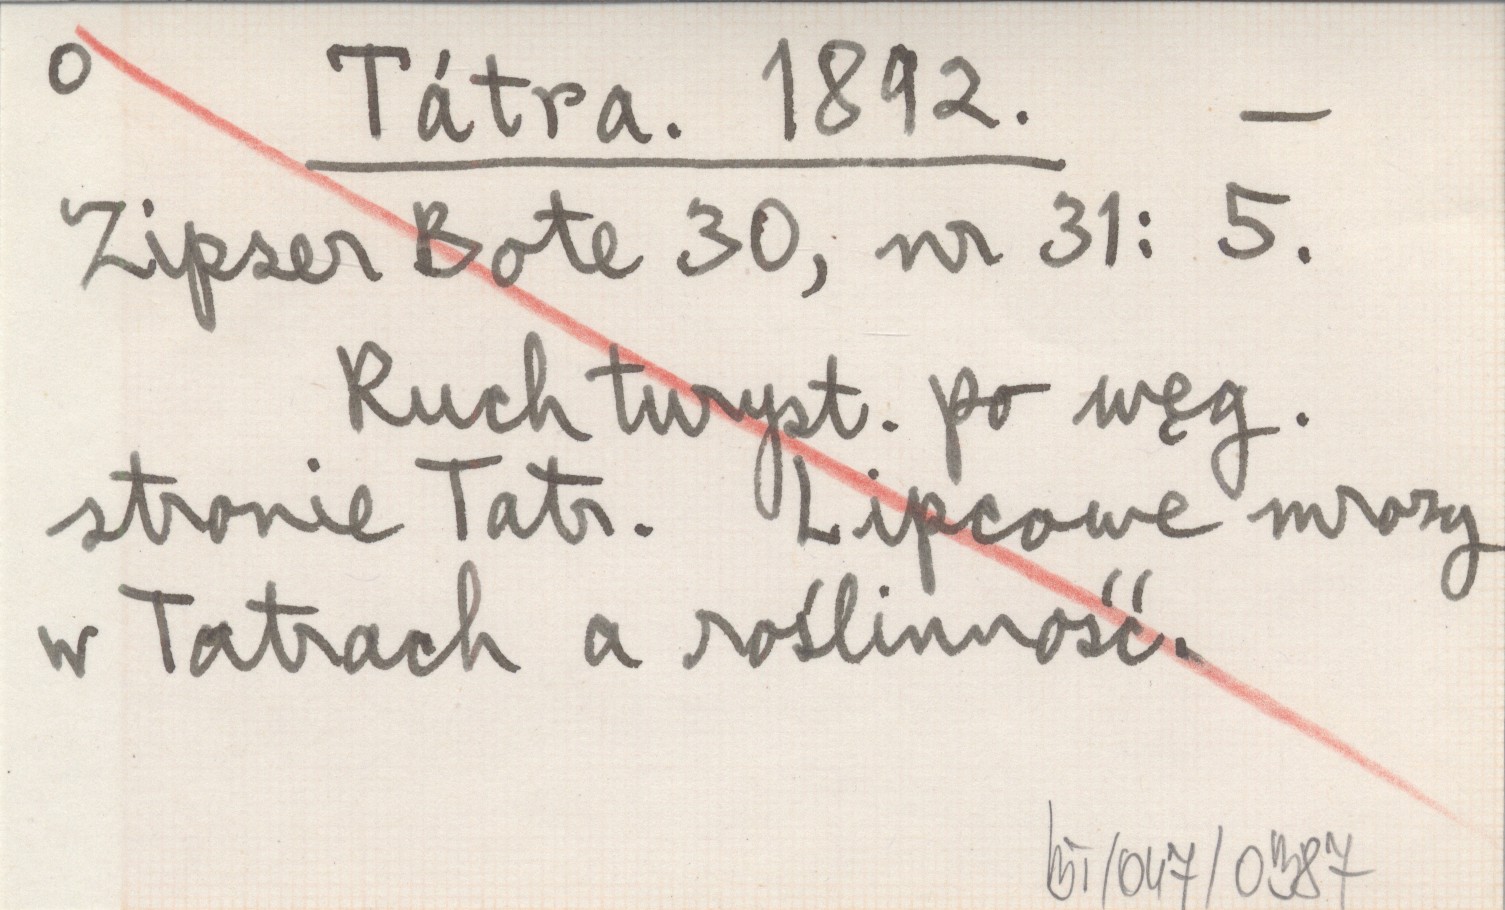 o Tátra. 1892. —
Zipser Bote 30, nr 31: 5.
Ruch turyst. po węg.
stronie Tatr. Lipcowe mrozy
w Tatrach a roślinność.
bi/047/0387